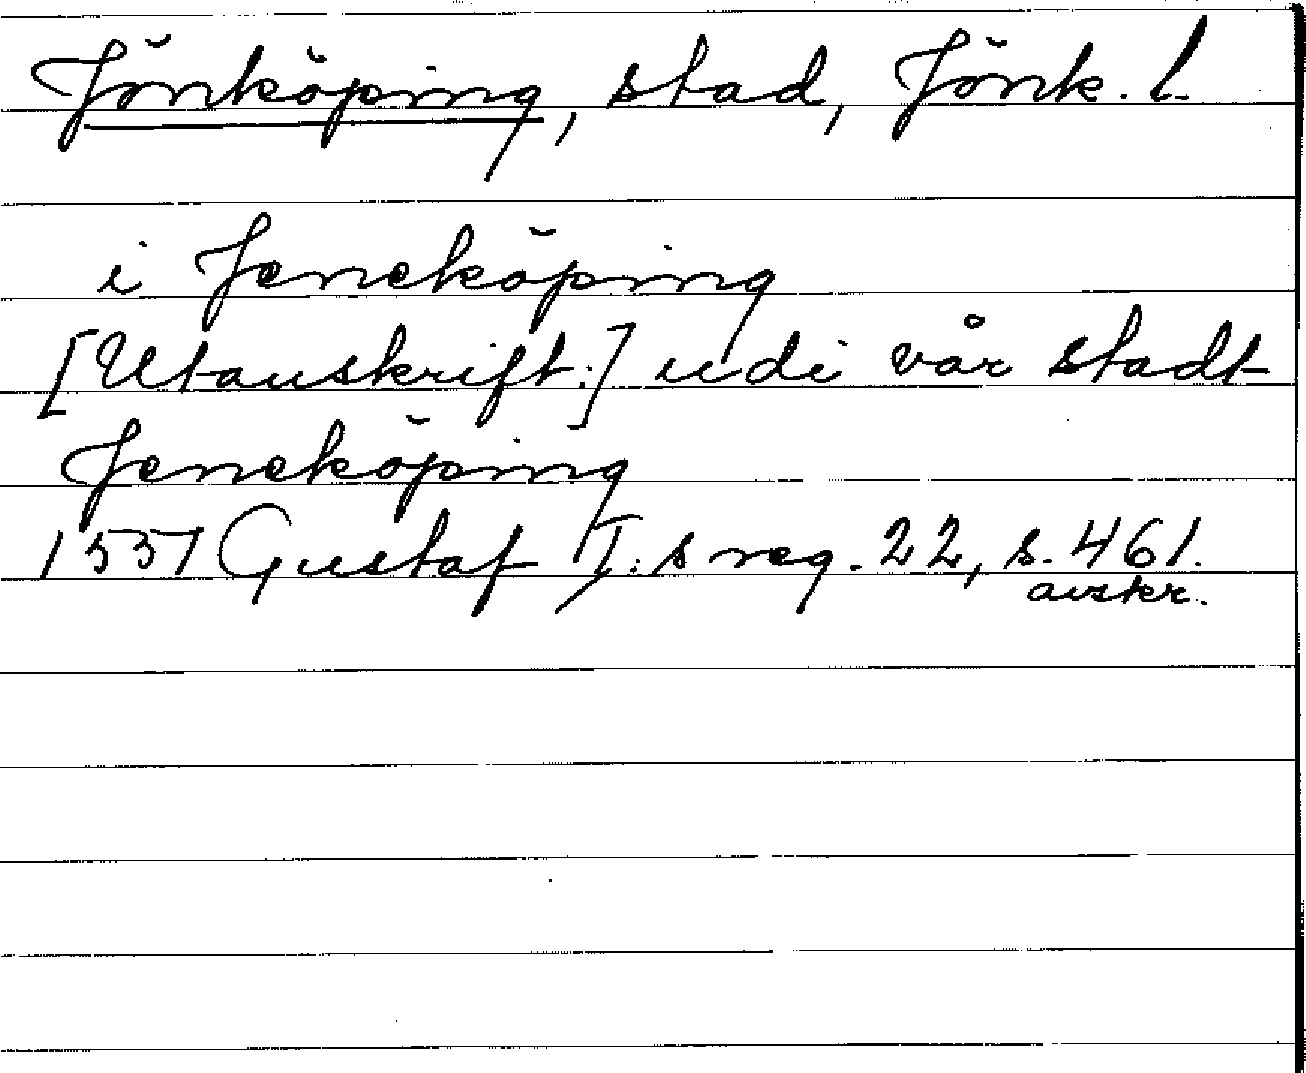 Jönköping, stad, Jönk. l.
i Jeneköping
[Utanskrift:] udi vår stadt
Jeneköping
1551 Gustaf I:s reg. 22, s. 461.
avskr.